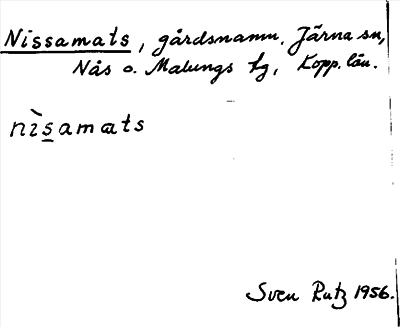 Nissamats, gårdsnamn. Järna sn,
Nås o. Malungs tg, Kopp. län.
nìs̲amats
Sven Rutz 1956.